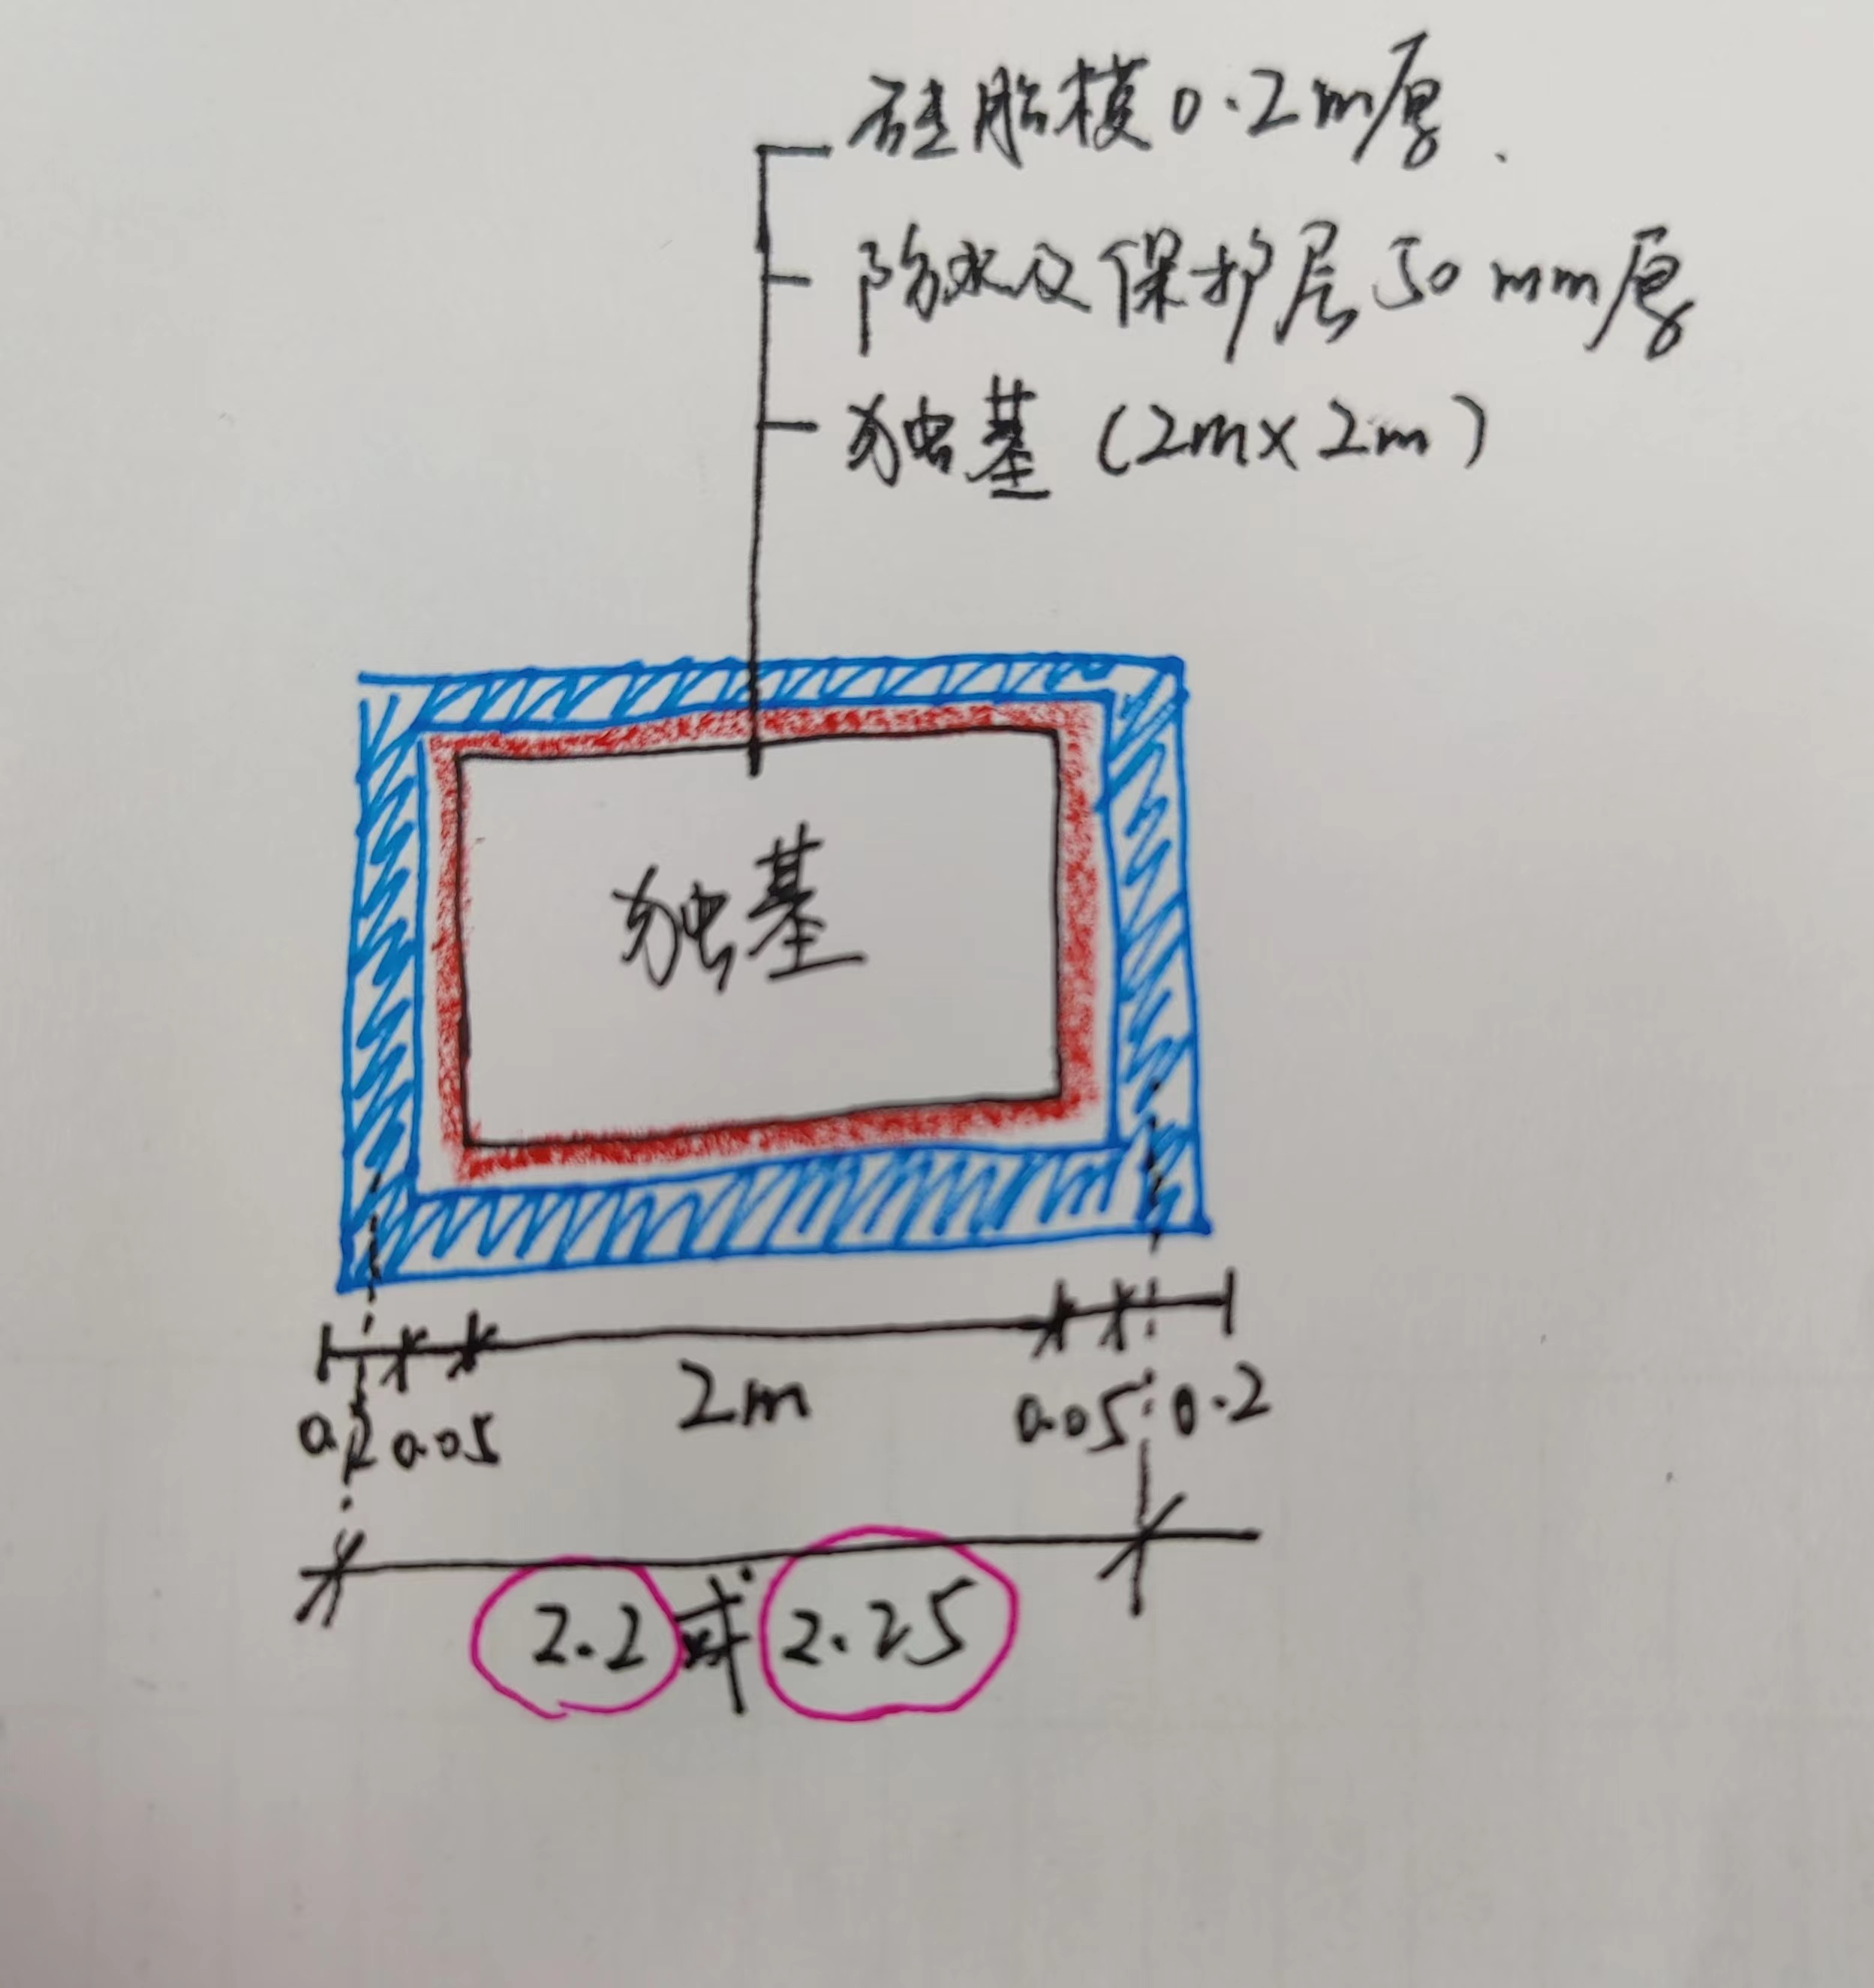 砖胎模0.2m厚.
防水及保护层50mm厚
独基(2m×2m)
独基
0.2 0.05 2m 0.05 0.2
2.2或2.25